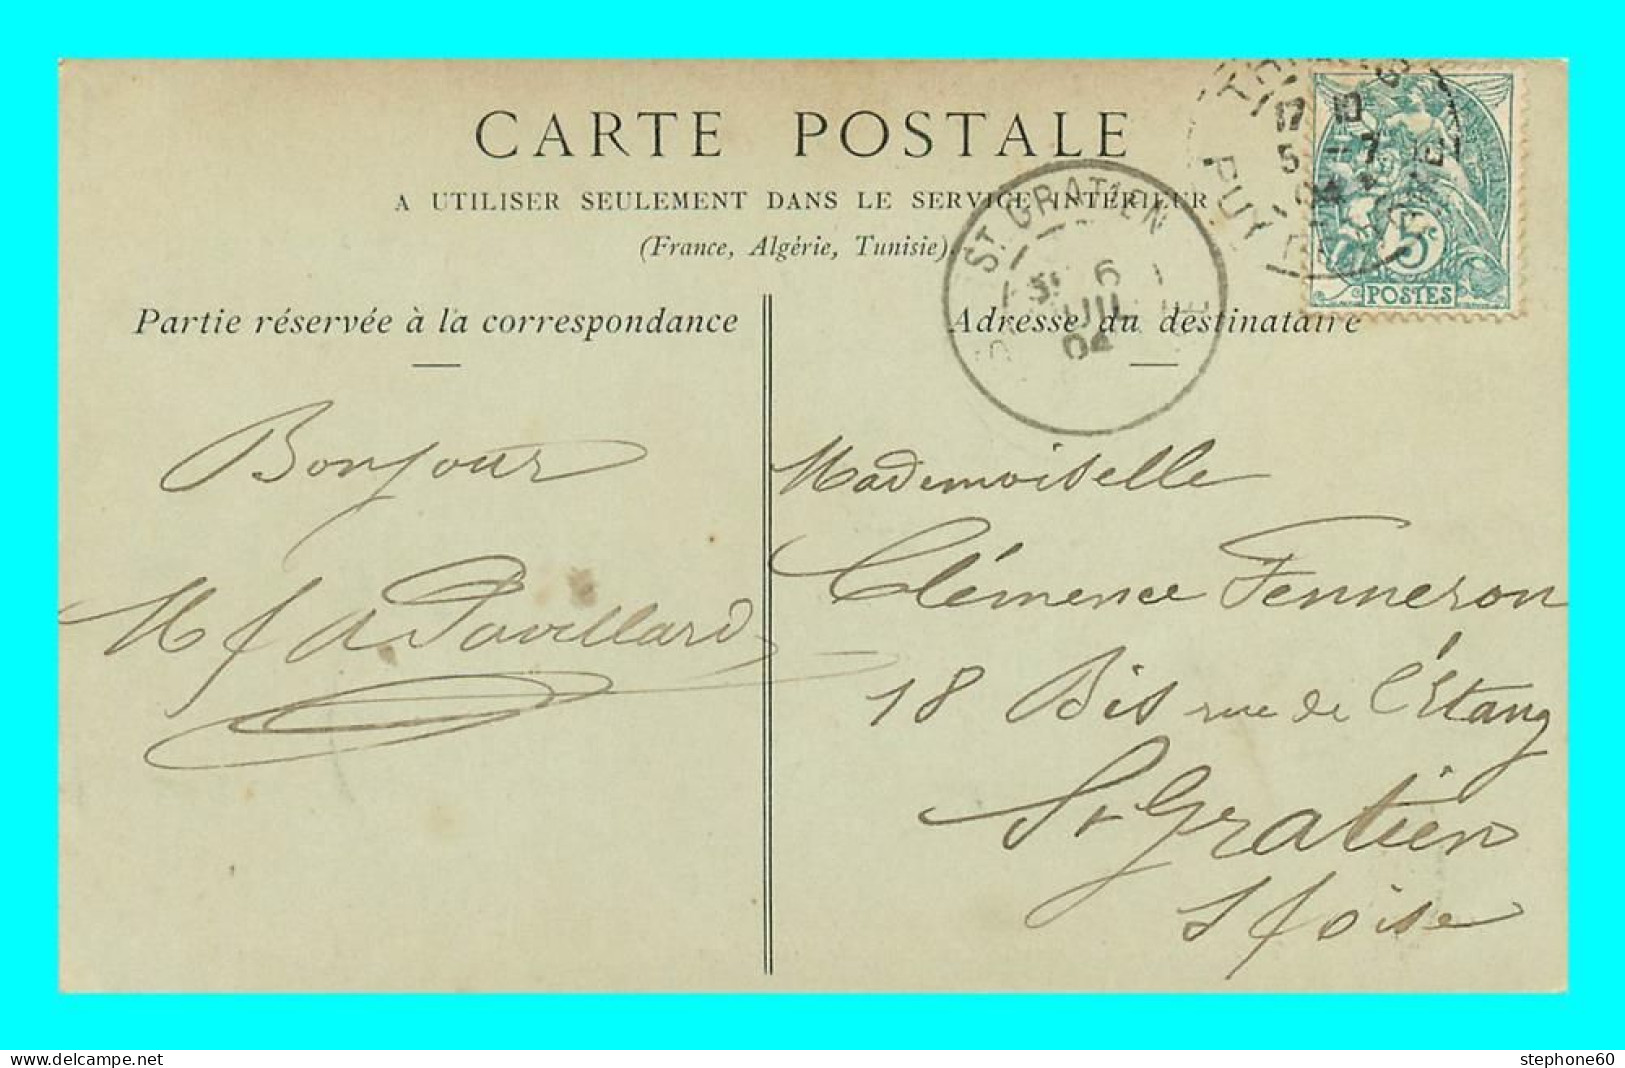 CARTE POSTALE
A UTILISER SEULEMENT DANS LE SERVICE INTÉRIEUR
(France, Algérie, Tunisie).
Partie réservée à la correspondance
Adresse du destinataire
ST GRATIEN
6
JUIL
04
17 10
5 -7
04
PUY DE
5c
POSTES
Bonjour
Mademoiselle
Clémence Fenneron
18 Bis rue de l'Étang
St Gratien
S / Oise
delcampe.net
stephone60